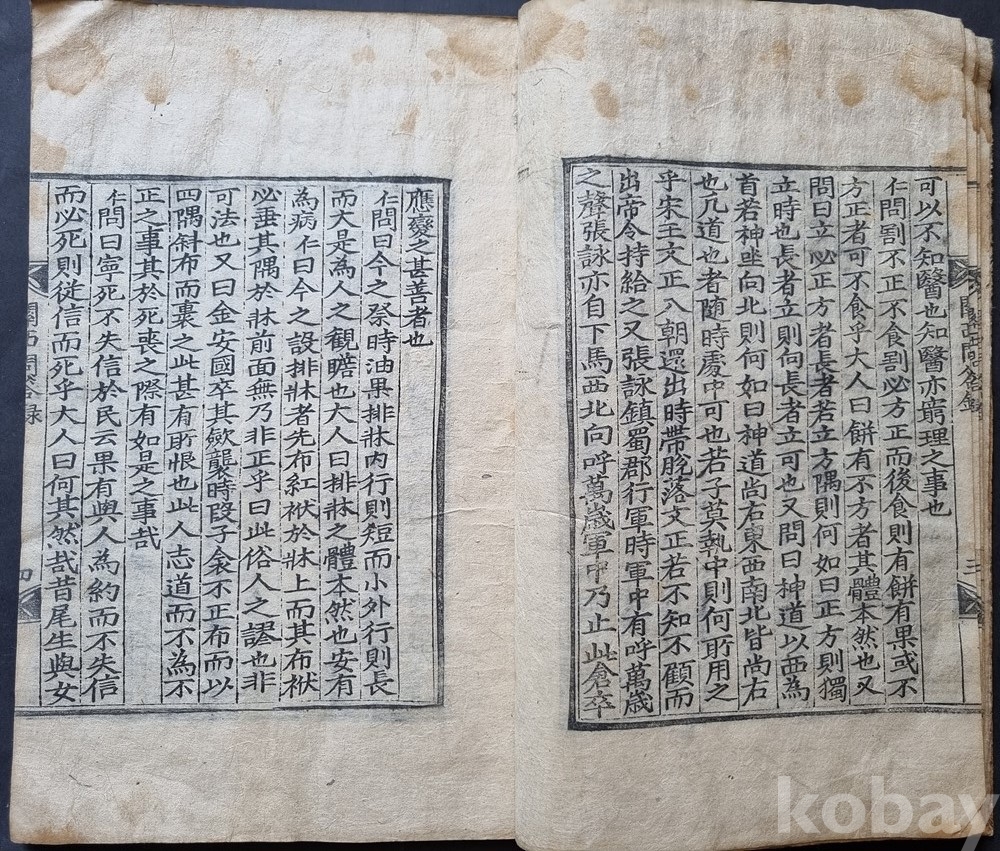 可以不知醫也知醫亦窮理之事也
仁問割不正不食割必方正而後食則有餠有果或不
方正者可不食乎大人曰餠有不方者其體本然也又
問曰立必正方者長者若立方隅則何如曰正方則獨
立時也長者立則向長者立可也又問曰神道以西爲
首若神㘴向北則何如曰神道尚右東西南北皆尚右
也凡道也者隨時處中可也若子莫執中則何所用之
乎宋王文正入朝還出時帶脫落文正若不知不顧而
出帝令持給之又張詠鎮蜀郡行軍時軍中有呼萬歲
之聲張詠亦自下馬西北向呼萬歲軍中乃止此倉卒
應變之甚善者也
仁問曰今之祭時油果排牀內行則短而小外行則長
而大是為人之觀瞻也大人曰排牀之體本然也安有
為病仁曰今之設排牀者先布紅袱於牀上而其布袱
必垂其隅於牀前面無乃非正乎曰此俗人之謬也非
可法也又曰金安國卒其歛襲時段子衾不正布而以
四隅斜布而裹之此甚有所恨也此人志道而不為不
正之事其於死喪之際有如是之事哉
仁問曰寧死不失信於民云果有與人為約而不失信
而必死則從信而死乎大人曰何其然哉昔尾生與女
關西問答錄
三
關西問答錄
四
kobay